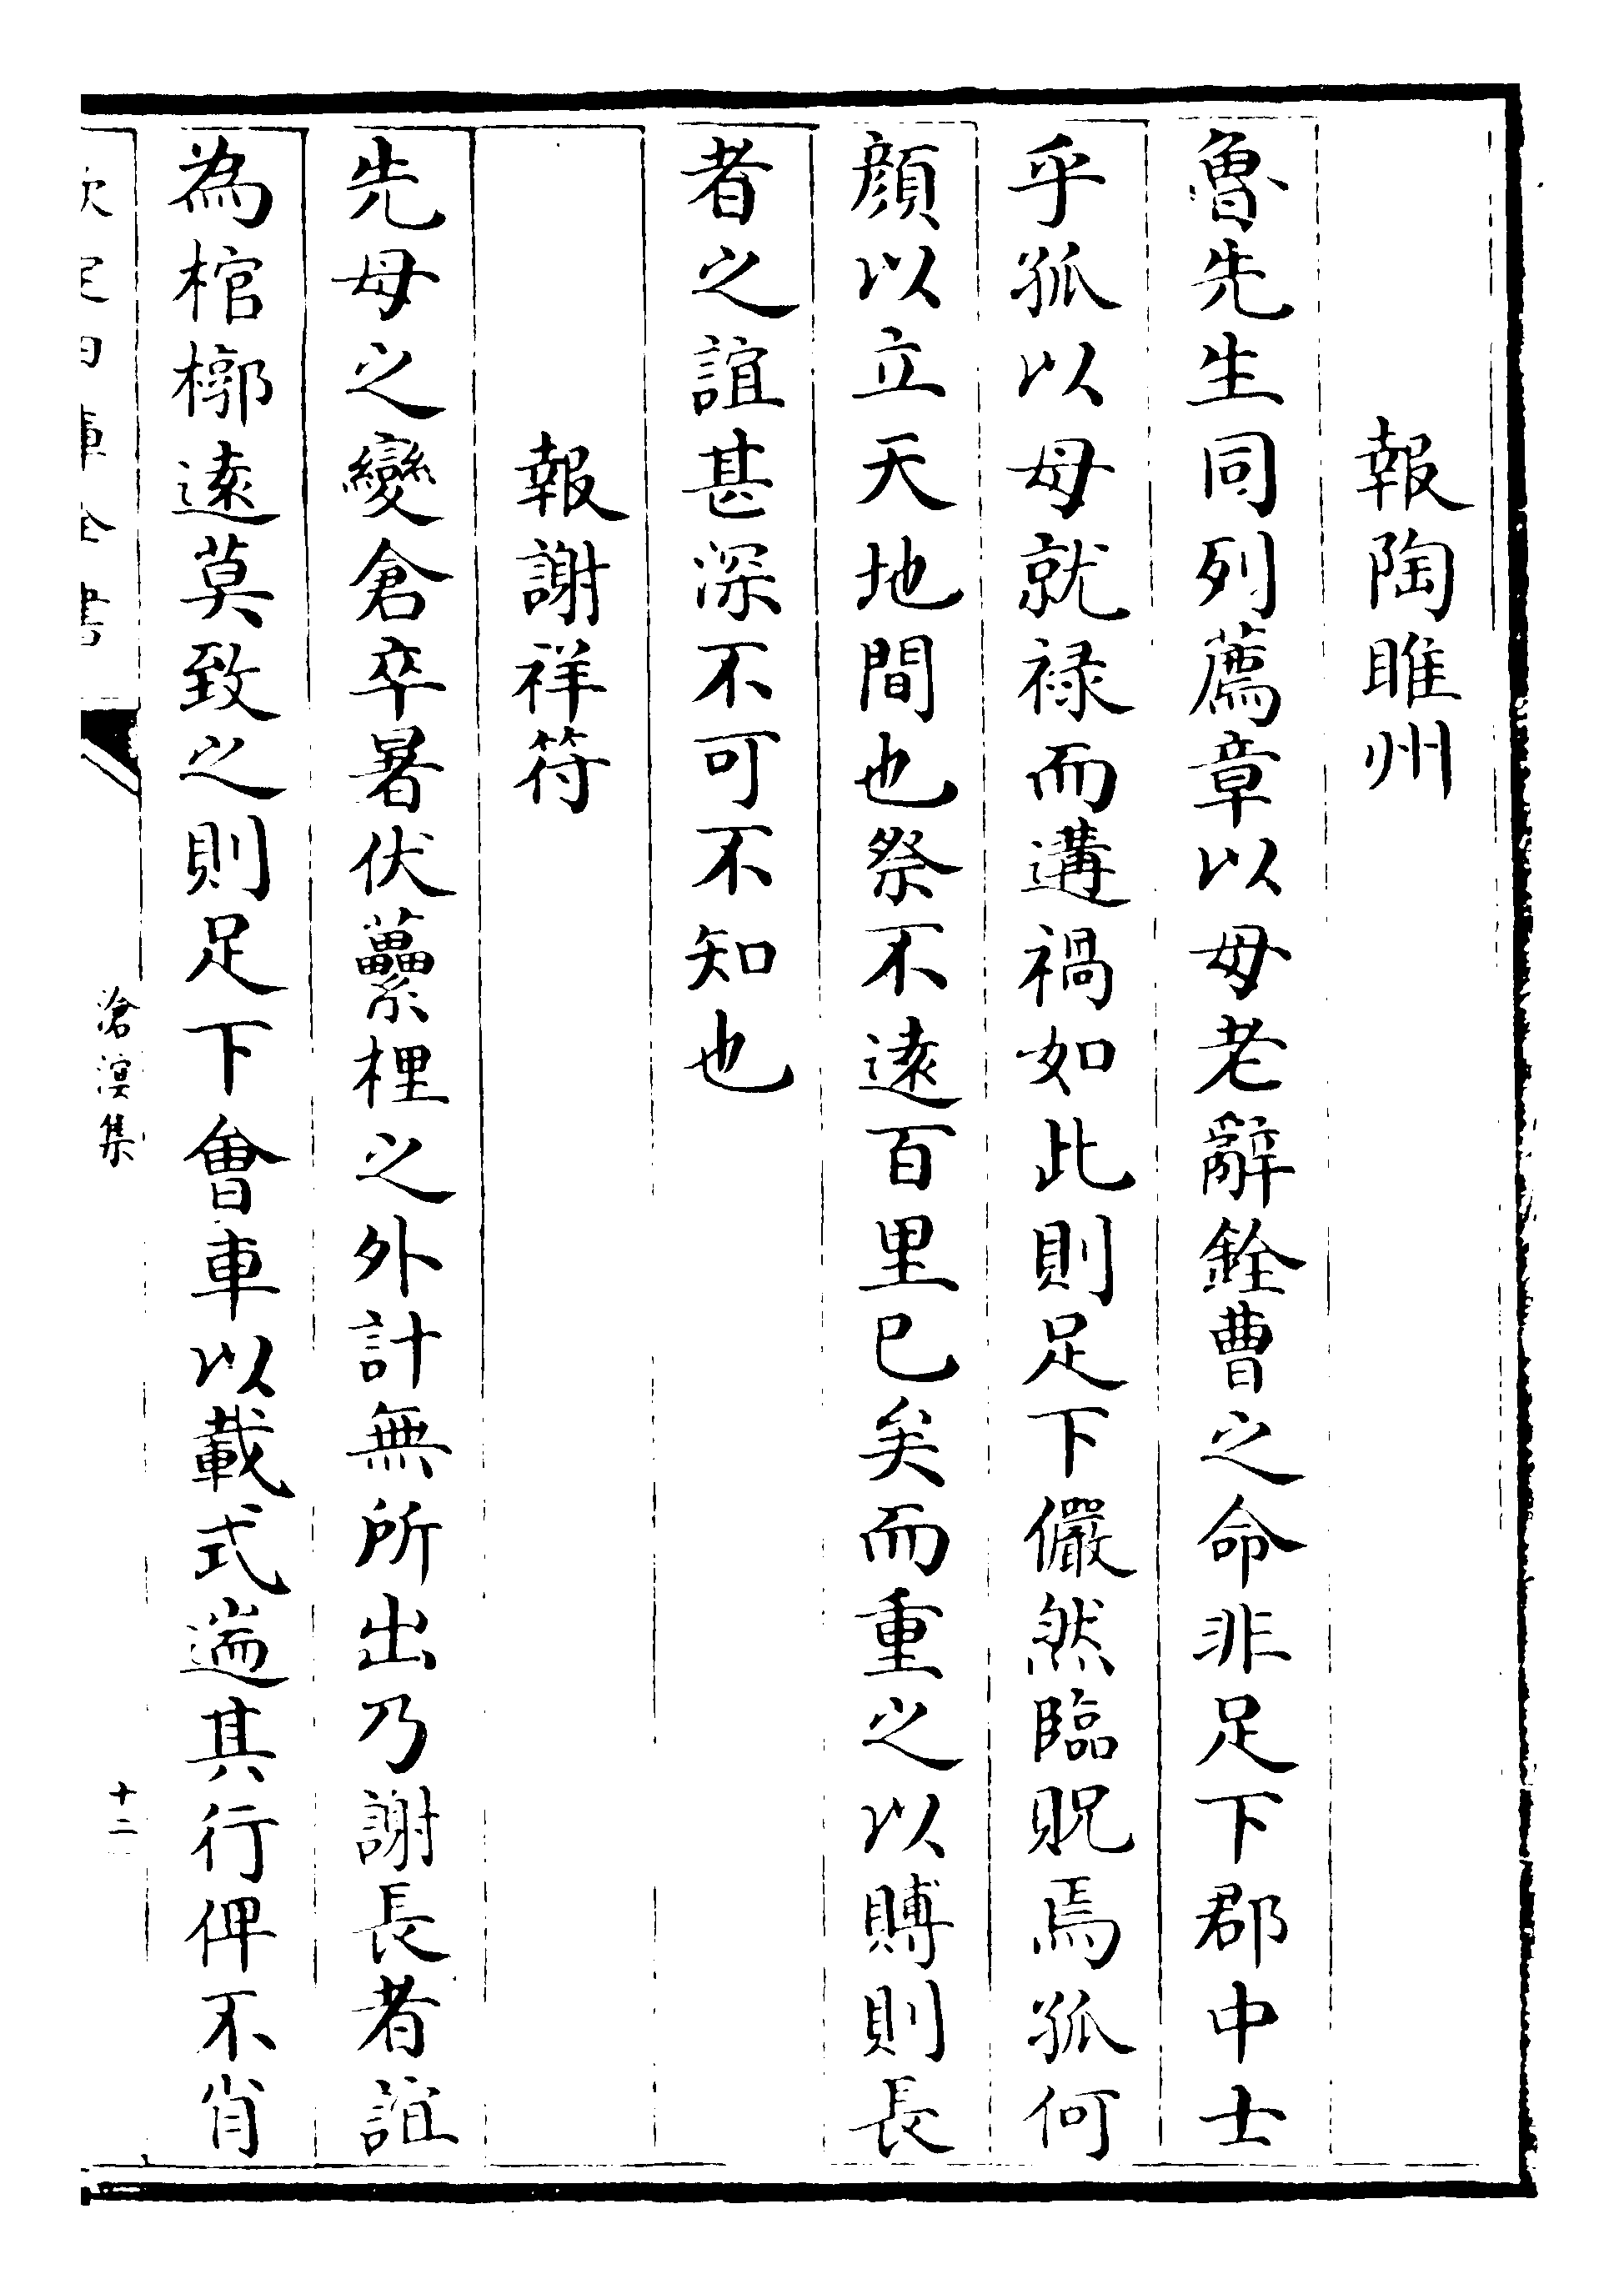 報陶睢州
魯先生同列薦章以母老辭銓曹之命非足下郡中士
乎孤以母就祿而遘禍如此則足下儼然臨貺焉孤何
顔以立天地間也祭不逺百里已矣而重之以賻則長
者之誼甚深不可不知也
報謝祥符
先母之變倉卒暑伏虆梩之外計無所出乃謝長者誼
為棺槨逺莫致之則足下會車以載式遄其行俾不肖
欽定四庫全書
滄溟集
十二